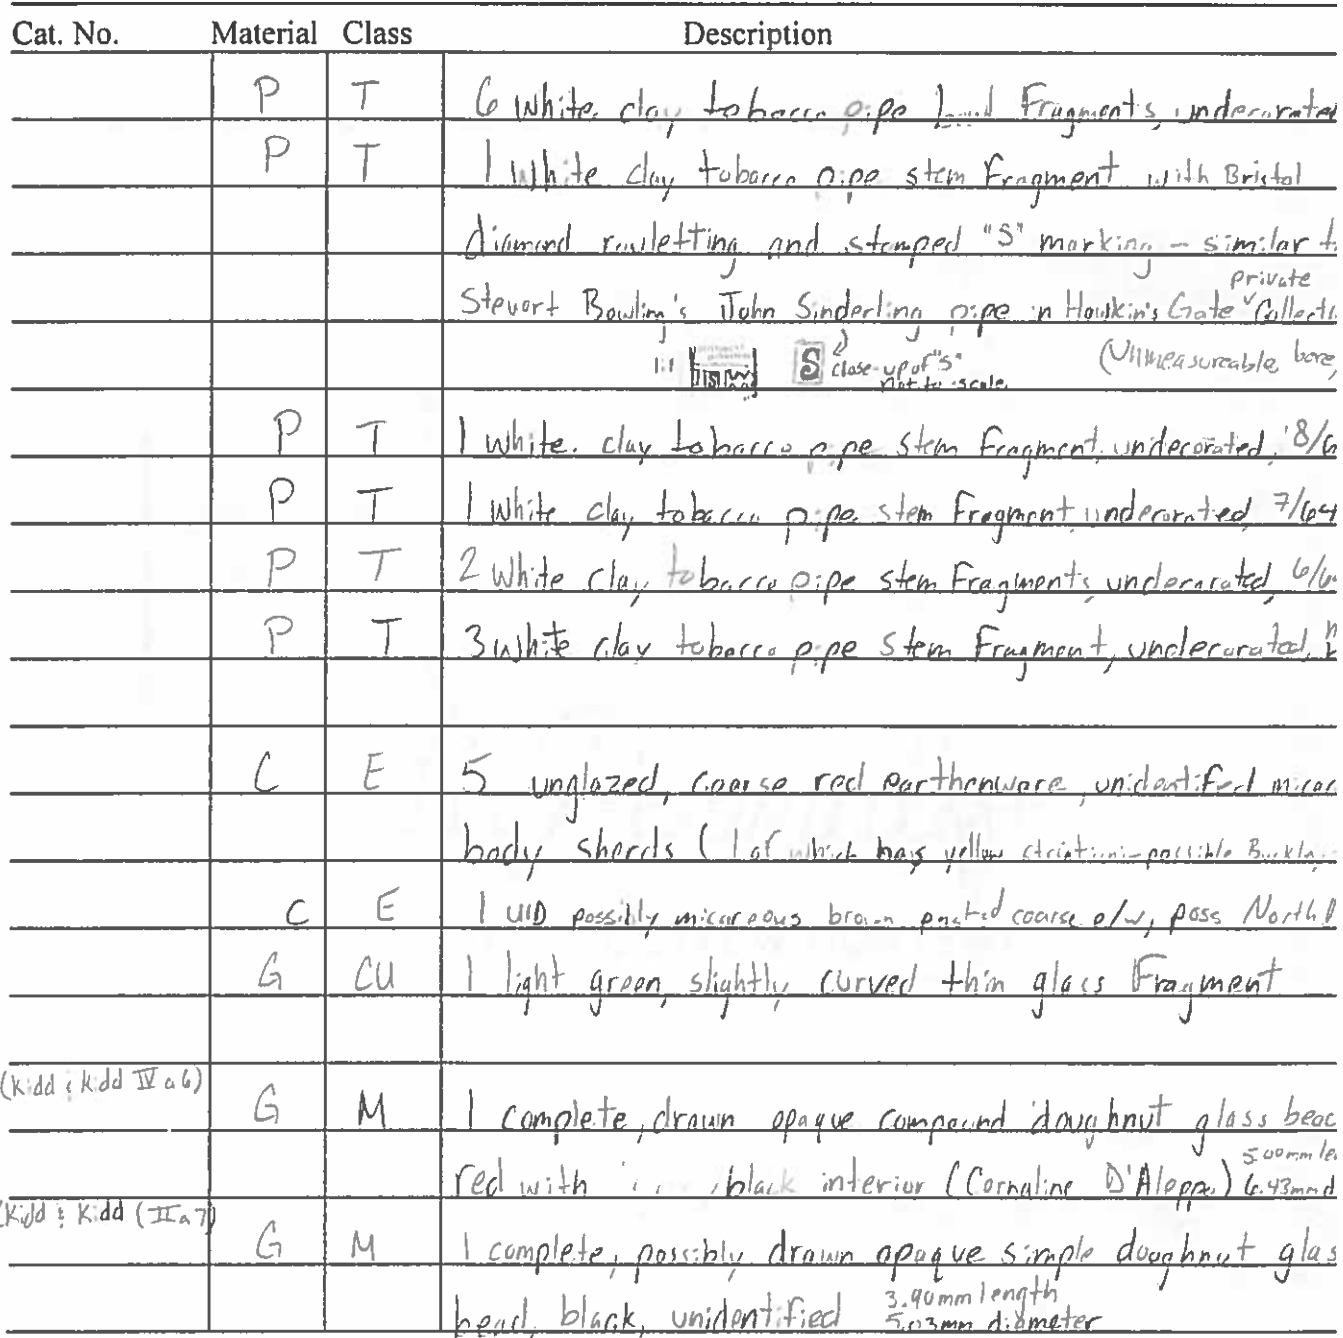 Cat. No. Material Class Description
P T 6 White clay tobacco pipe bowl Fragments, undecorated
P T 1 White clay tobacco pipe stem Fragment with Bristol
diamond rouletting and stamped "S" marking - similar t
private
Stewart Bowling's John Sinderling pipe in Hawkin's Gate Collecti
1:1 S close-up of "S" (Unmeasureable bore,
not to scale
P T 1 white clay tobacco pipe stem fragment, undecorated, 8/6
P T 1 White clay tobacco pipe stem Fragment undecorated 7/64
P T 2 White clay tobacco pipe stem Fragments, undecorated, 6/6
P T 3 White clay tobacco pipe stem Fragment, undecorated,
C E 5 unglazed, coarse red earthenware, unidentified micac
body sherds (1 of which has yellow striations-possible Buckl
C E 1 UID possibly micaceous brown pasted coarse e/w, poss North D
G CU 1 light green, slightly curved thin glass Fragment
(Kidd & Kidd IVa6) G M 1 complete, drawn opaque compound doughnut glass bead
5.00mm le
red with black interior (Cornaline D'Aleppo) 6.43mm d
(Kidd & Kidd (IIa7) G M 1 complete, possibly drawn opaque simple doughnut glas
bead, black, unidentified 3.90mm length
5.03mm diameter